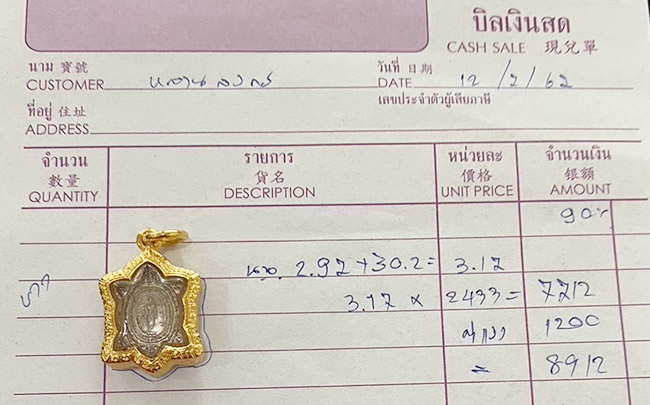 บิลเงินสด
CASH SALE 現兌單
นาม 寶號
CUSTOMER
วันที่ 日期
DATE 12/2/62
เลขประจำตัวผู้เสียภาษี
ที่อยู่ 住址
ADDRESS
จำนวน รายการ หน่วยละ จำนวนเงิน
數量 貨名 價格 银額
QUANTITY DESCRIPTION UNIT PRICE AMOUNT
90%
2.97 + 30.2 = 3.17
3.17 x 2433 = 7712
1200
= 8912